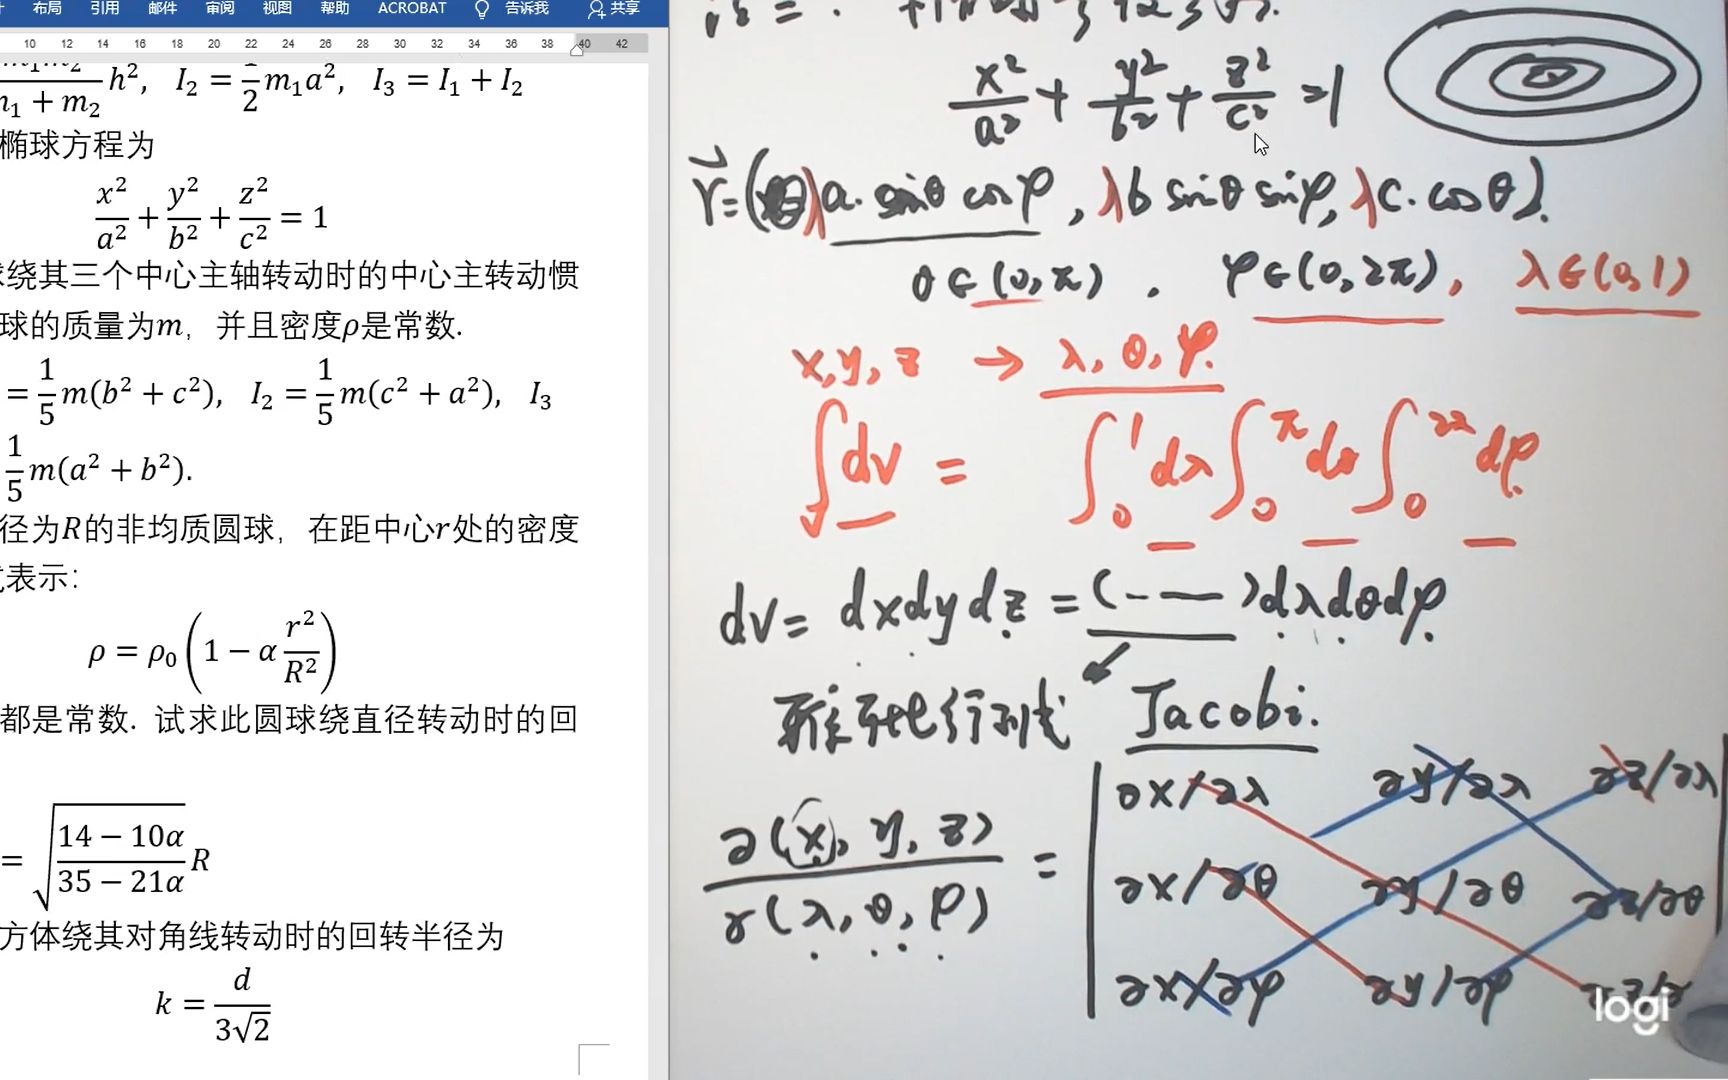 布局 引用 邮件 审阅 视图 帮助 ACROBAT 告诉我 共享
10 12 14 16 18 20 22 24 26 28 30 32 34 36 38 40 42
h², I₂ = 1/2 m₁a², I₃ = I₁ + I₂
m₁ + m₂
椭球方程为
x²/a² + y²/b² + z²/c² = 1
绕其三个中心主轴转动时的中心主转动惯
球的质量为m，并且密度ρ是常数.
= 1/5 m(b² + c²), I₂ = 1/5 m(c² + a²), I₃
1/5 m(a² + b²).
径为R的非均质圆球，在距中心r处的密度
表示：
ρ = ρ₀(1 − α r²/R²)
都是常数. 试求此圆球绕直径转动时的回
= √((14 − 10α)/(35 − 21α)) R
方体绕其对角线转动时的回转半径为
k = d/(3√2)
x²/a² + y²/b² + z²/c² = 1
r⃗ = (λa·sinθ cosφ, λb sinθ sinφ, λc·cosθ).
θ∈(0,π). φ∈(0,2π), λ∈(0,1)
x,y,z → λ,θ,φ.
∫_V dV = ∫₀¹dλ ∫₀^π dθ ∫₀^2π dφ.
dV = dxdydz = (-—)dλdθdφ
行列式 Jacobi.
∂(x, y, z)/∂(λ, θ, φ) = | ∂x/∂λ ∂y/∂λ ∂z/∂λ
∂x/∂θ ∂y/∂θ ∂z/∂θ
∂x/∂φ ∂y/∂φ ∂z/∂
logi